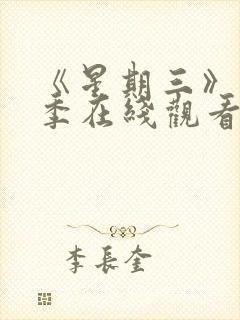 《星期三》
季在綫觀看
李長奎